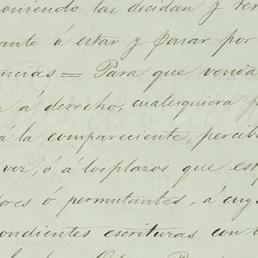 oniendo las decidan y ter
ante á estar y pasar por
encias = Para que venia
á derecho, cualesquiera p
á la compareciente, percib
vez, ó á los plazos que est
ores ó permutantes, á cuy
pondientes escrituras con